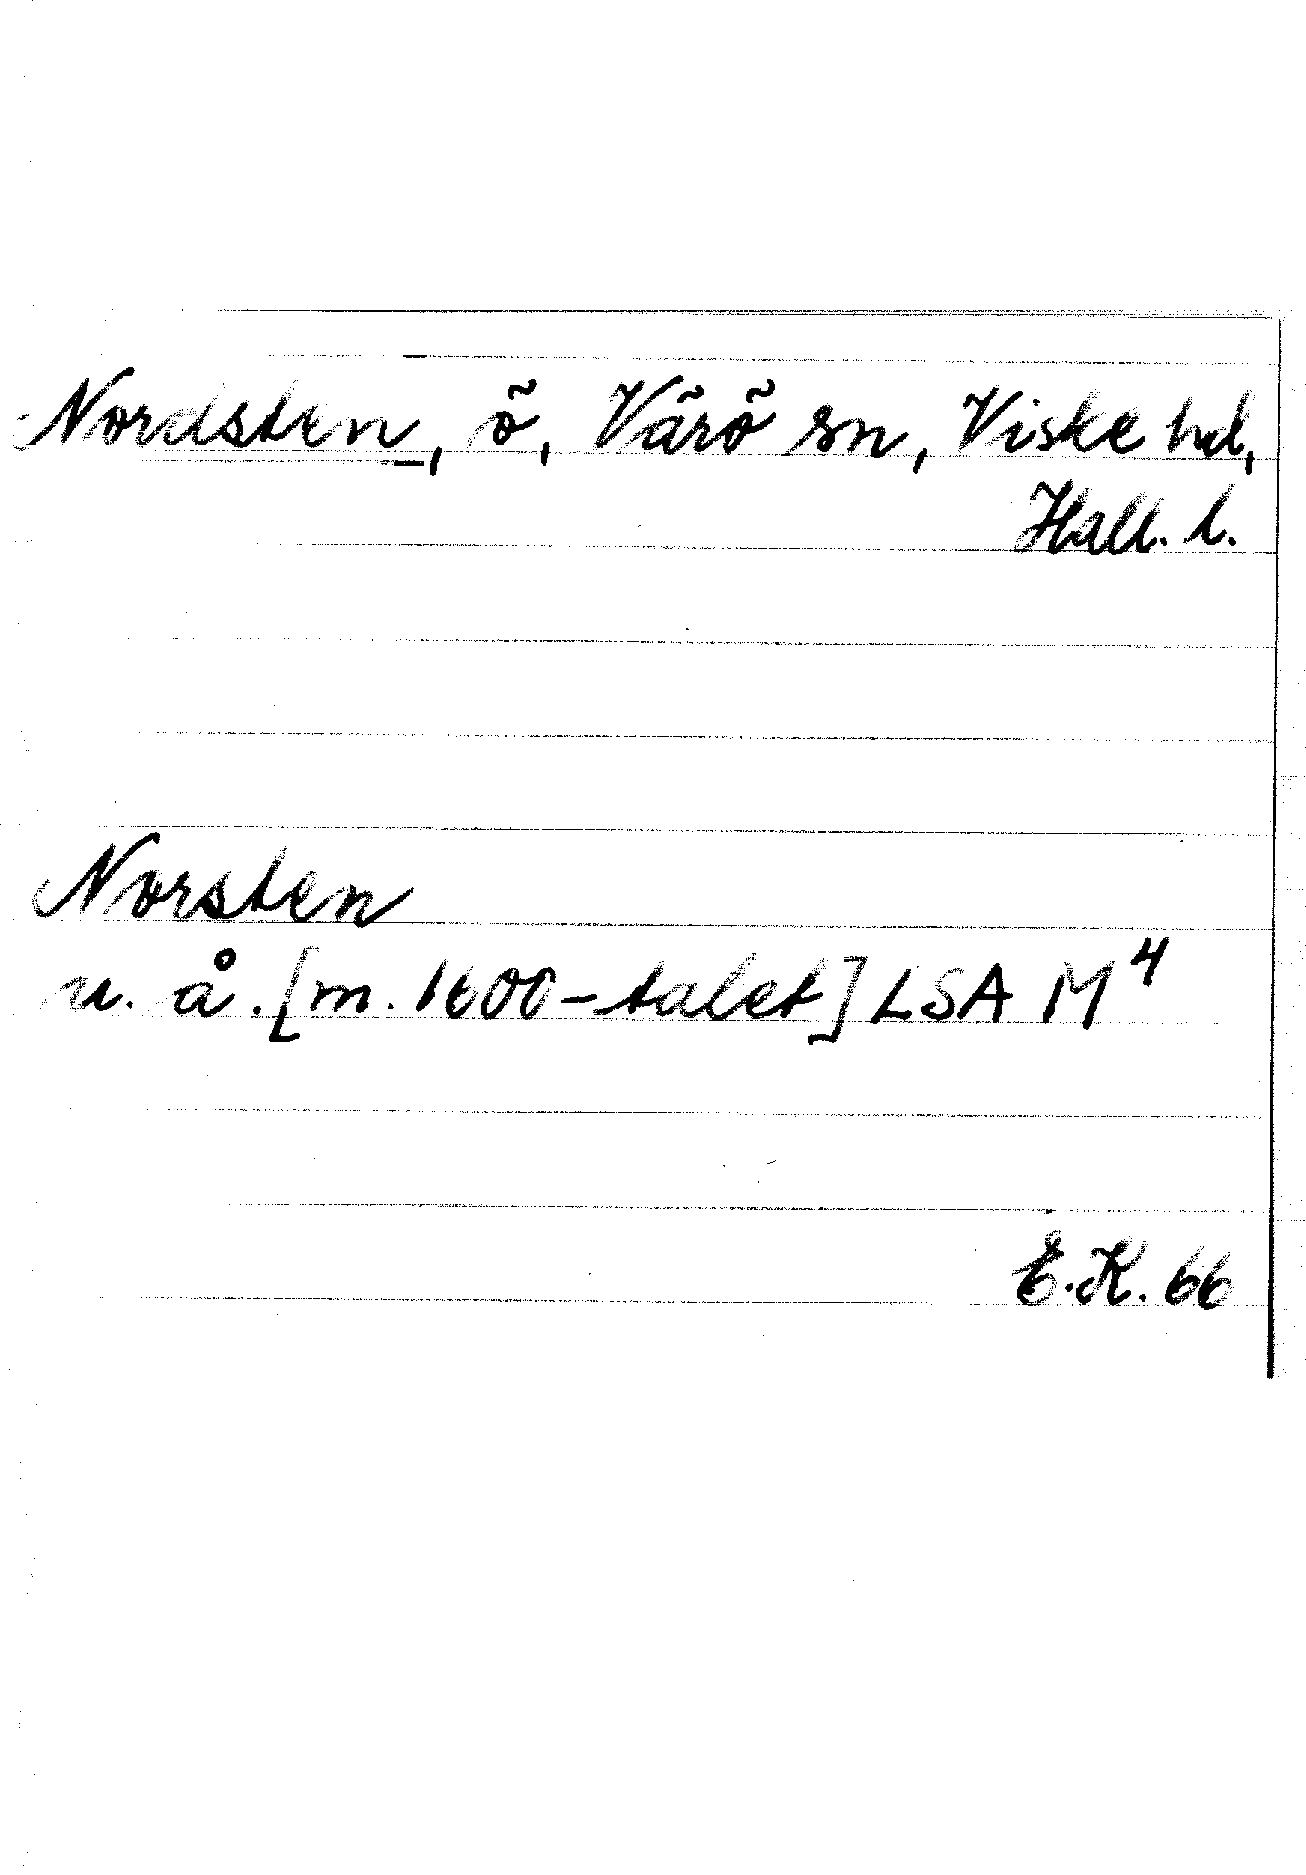 Nordsten, ö, Värö sn, Viske hd,
Hall. l.
Norsten
u. å. [m. 1600-talet] LSA M⁴
E.K. 66